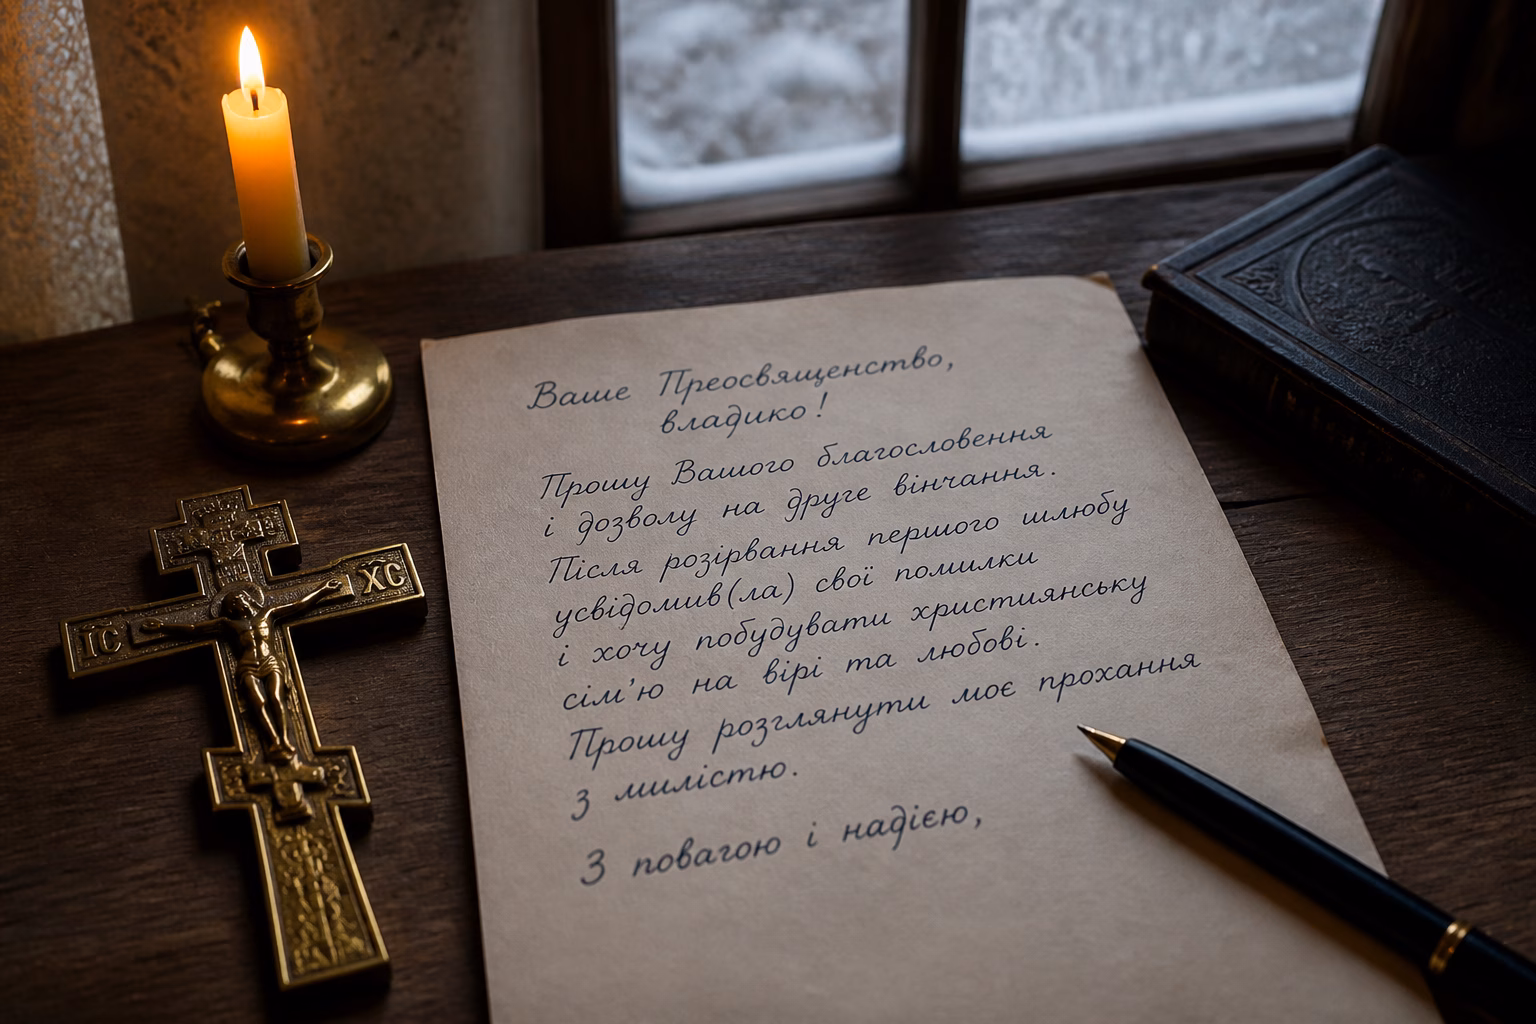 Ваше Преосвященство,
владико!
Прошу Вашого благословення
і дозволу на друге вінчання.
Після розірвання першого шлюбу
усвідомив(ла) свої помилки
і хочу побудувати християнську
сім'ю на вірі та любові.
Прошу розглянути моє прохання
з милістю.
З повагою і надією,
ІС
ХС